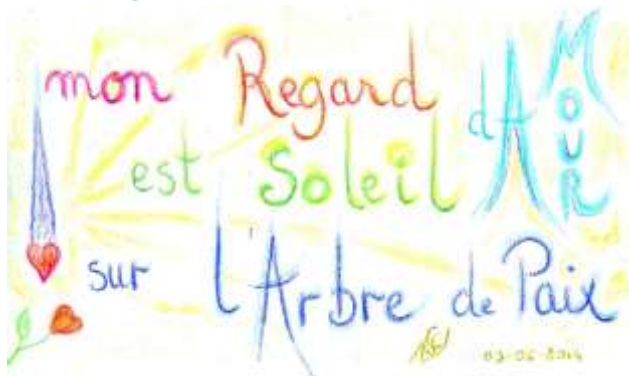 mon Regard d'AMOUR
est Soleil
sur l'Arbre de Paix